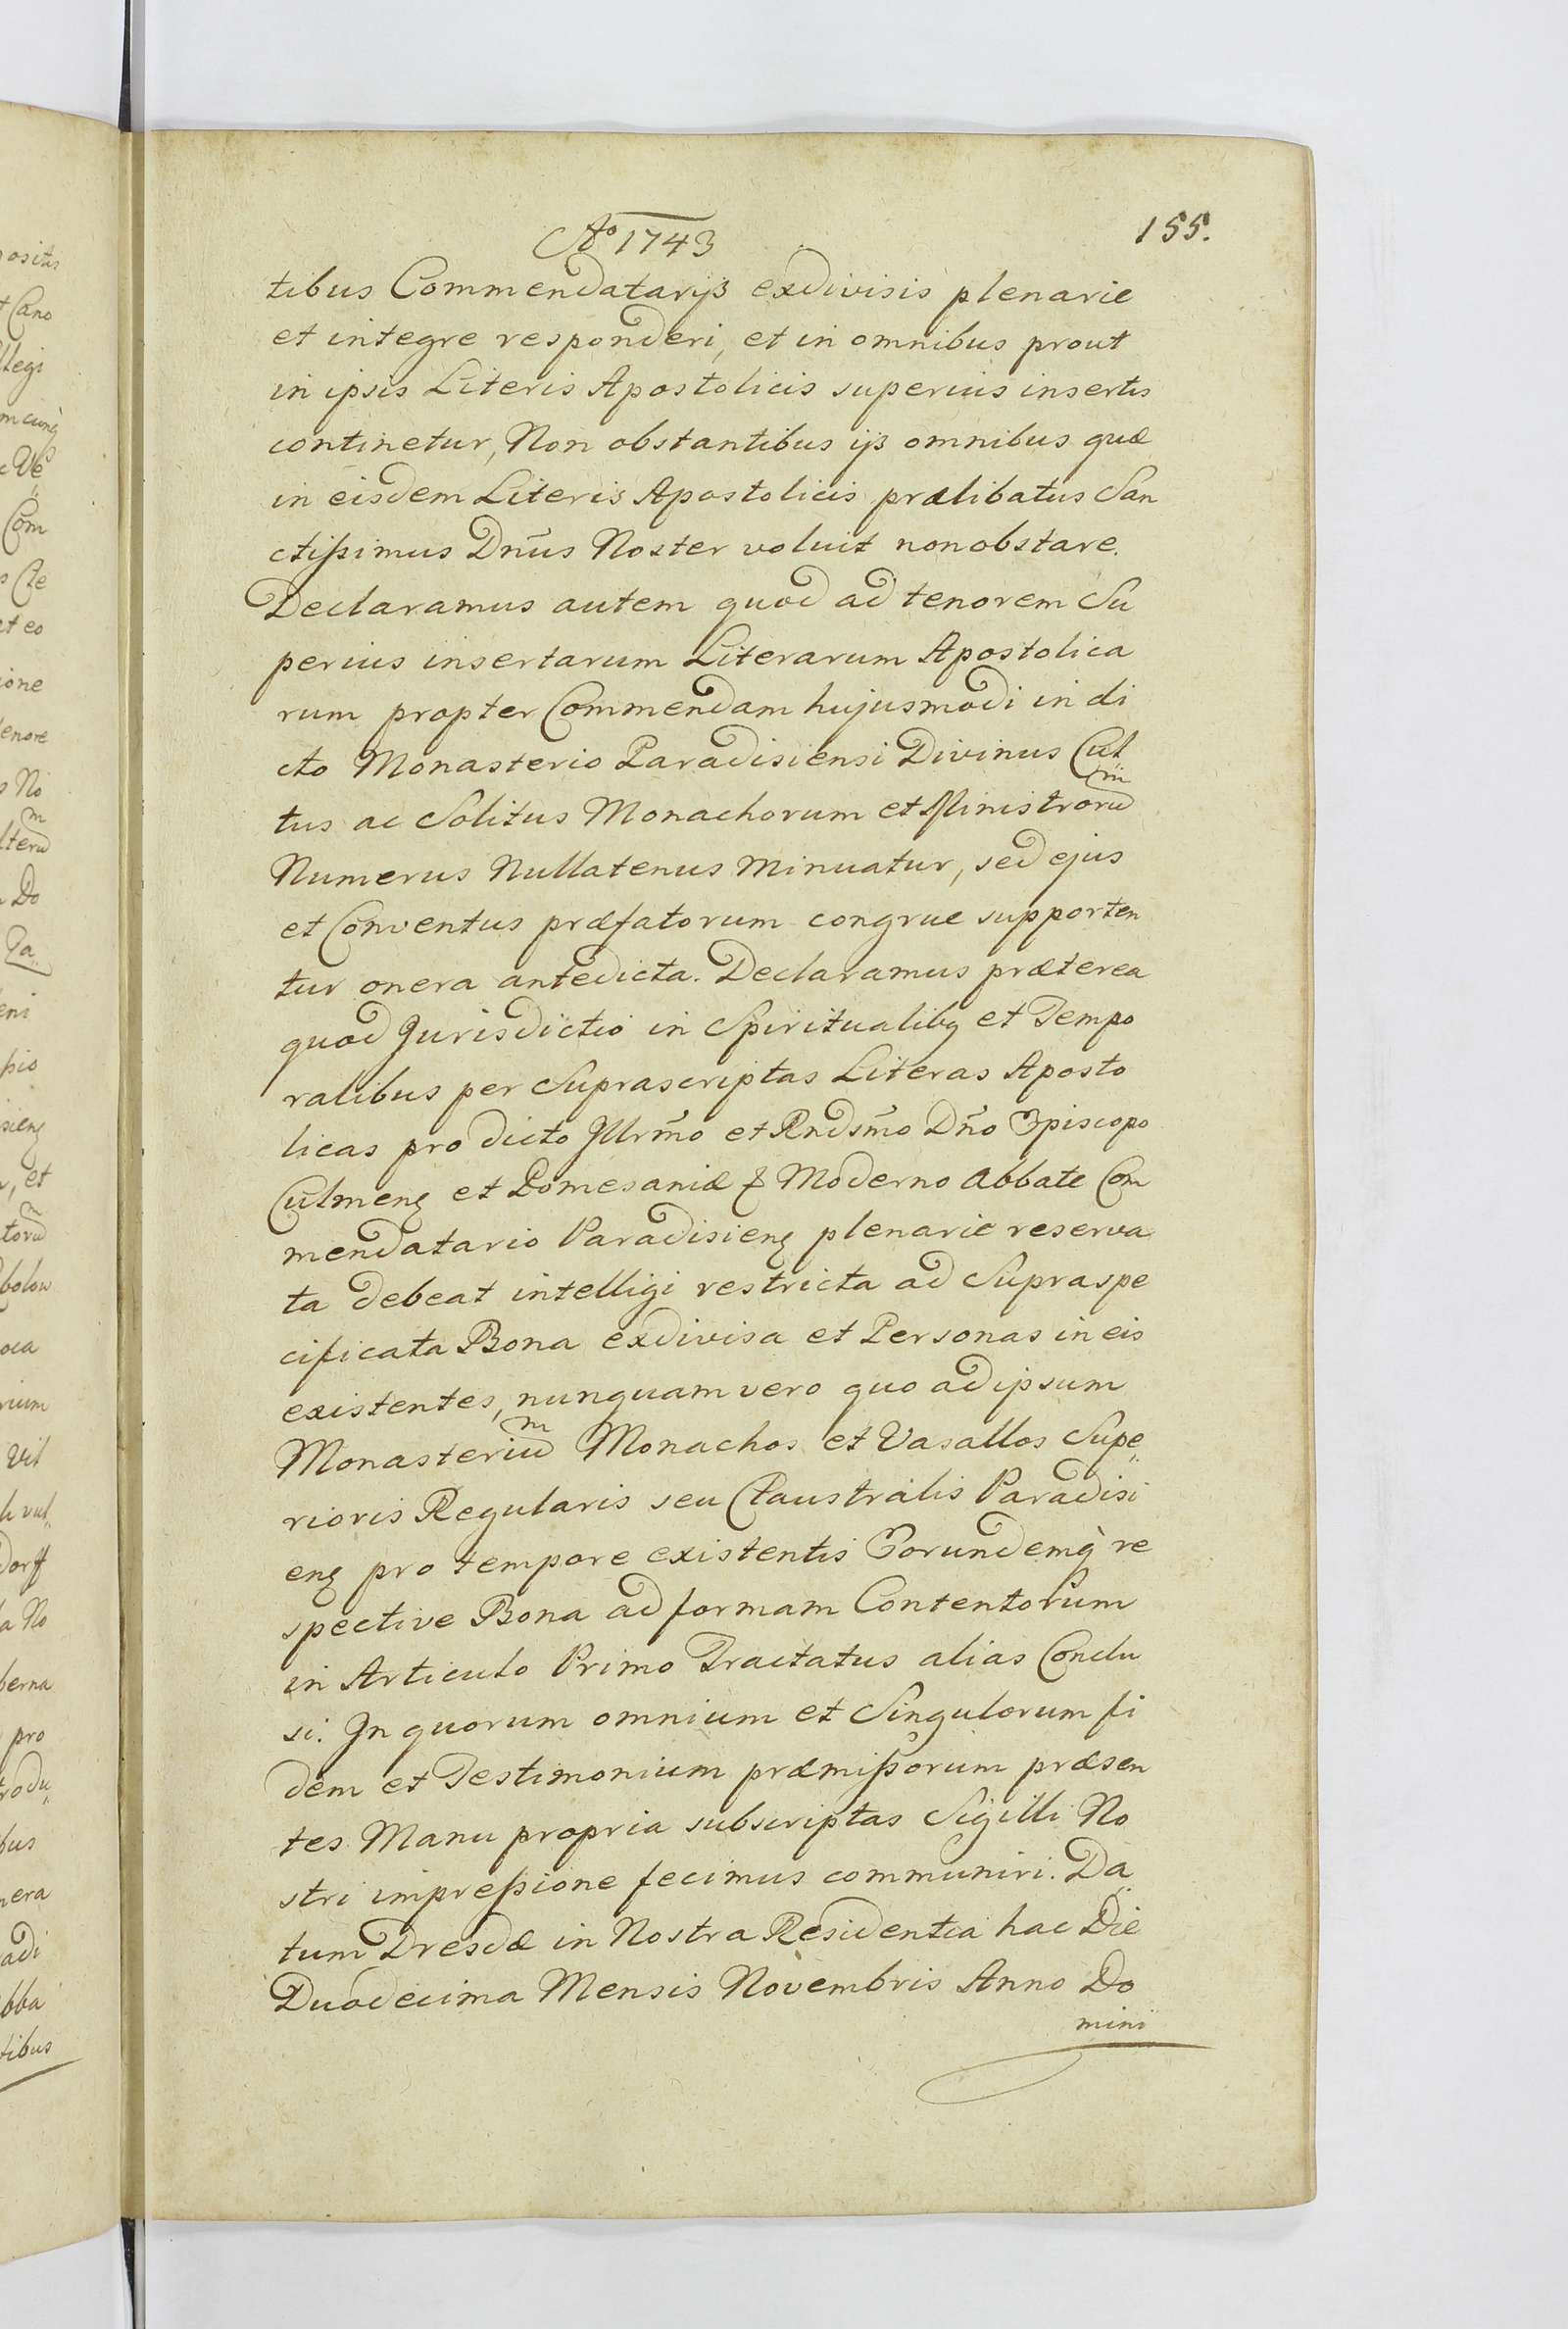 Aō 1743
155.
tibus Commendatarijs exdivisis plenarie
et integre responderi, et in omnibus prout
in ipsis Literis Apostolicis superius insertis
continetur, Non obstantibus ijs omnibus quæ
in eisdem Literis Apostolicis prælibatus San
ctißimus Dn̄us Noster voluit non obstare.
Declaramus autem quod ad tenorem Su
perius insertarum Literarum Apostolica
rum propter Commendam hujusmodi in di
cto Monasterio Paradisiensi Divinus Cul
tus ac Solitus Monachorum et Ministrorum
Numerus Nullatenus Minuatur, sed ejus
et Conventus præfatorum congrue supporten
tur onera antedicta. Declaramus præterea
quod Jurisdictio in Spiritualibꝫ et Tempo
ralibus per Suprascriptas Literas Aposto
licas pro dicto Jllrm̄o et Rndsm̄o Dn̄o Episcopo
Culmenꝫ et Pomesaniæ & Moderno Abbate Com
mendatario Paradisienꝫ plenarie reserva
ta debeat intelligi restricta ad Supraspe
cificata Bona exdivisa et Personas in eis
existentes, nunquam vero quo ad ipsum
Monasterium Monachos et Vasallos Supe„
rioris Regularis seu Claustralis Paradisi
enꝫ pro tempore existentis Eorundemq̀ re
spective Bona ad formam Contentorum
in Articulo Primo Tractatus alias Conclu
si. Jn quorum omnium et Singulorum fi
dem et Testimonium præmißorum præsen
tes Manu propria subscriptas Sigilli No
stri impreßione fecimus communiri. Da„
tum Dresdæ in Nostra Residentia hac Die
Duodecima Mensis Novembris Anno Do
mini